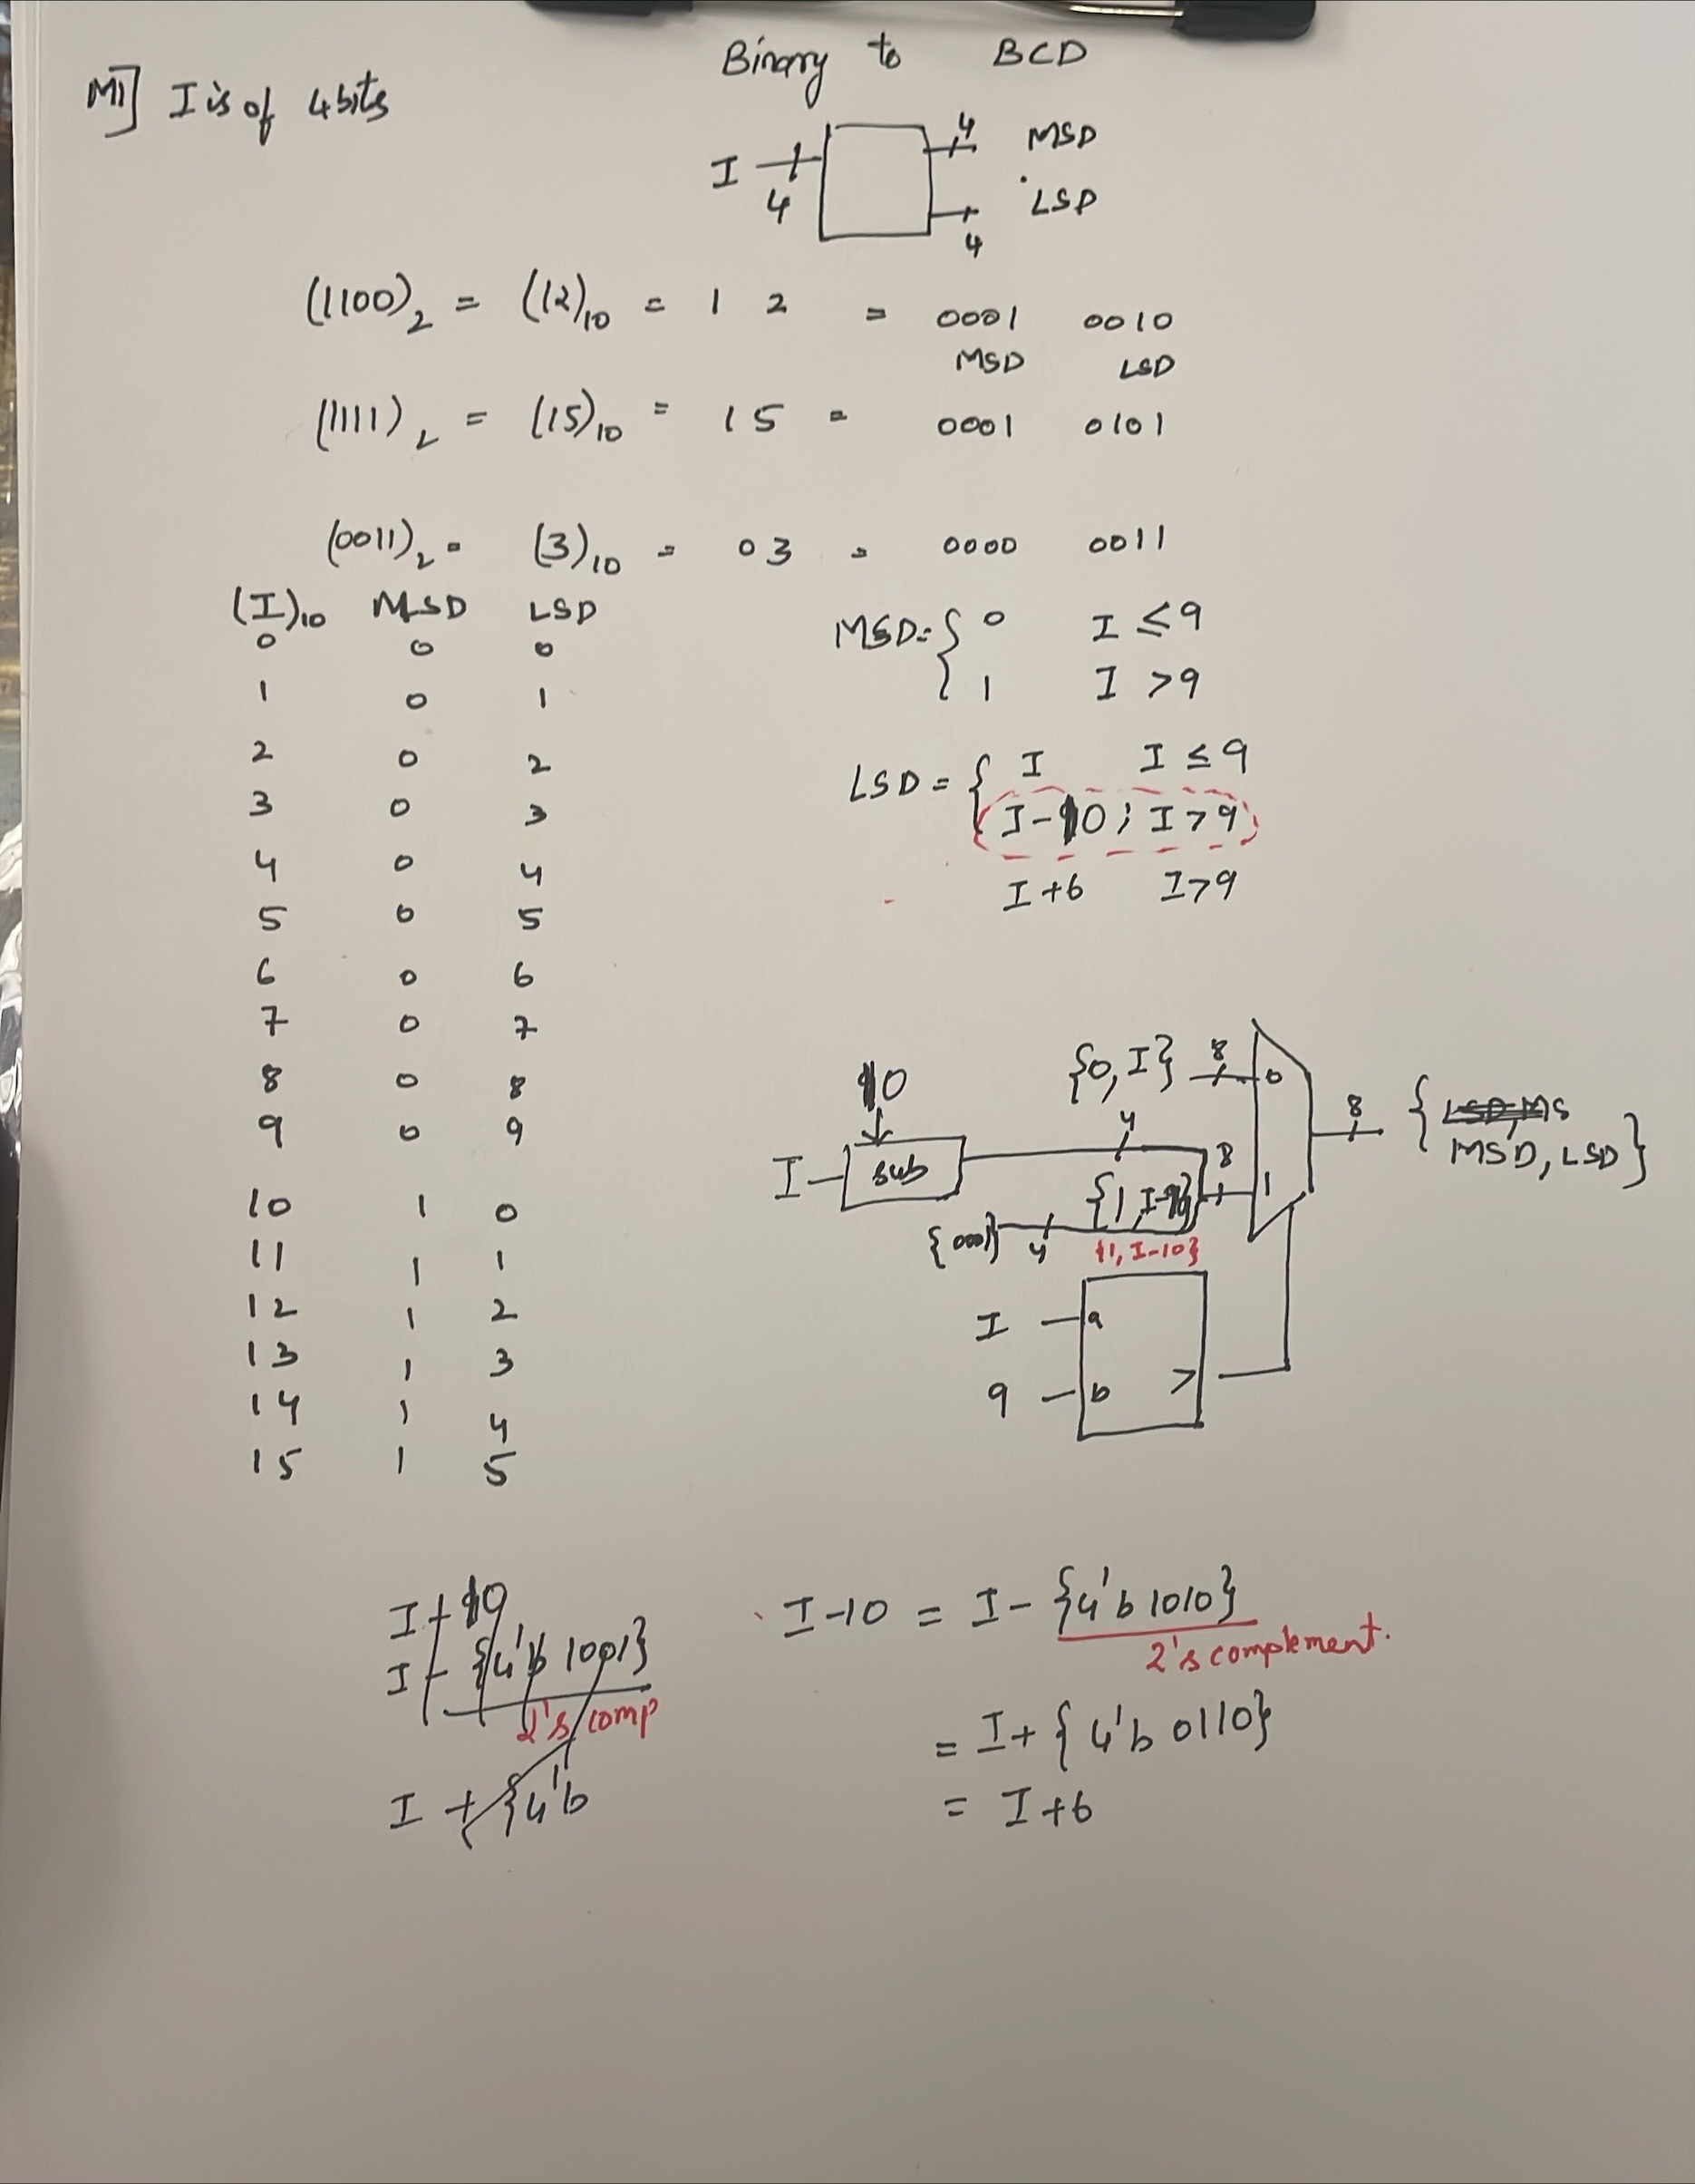 Binary to BCD
M1] I is of 4 bits
I 4
4 MSD
LSD
4
(1100)₂ = (12)₁₀ = 1 2 = 0001 0010
MSD LSD
(1111)₂ = (15)₁₀ = 15 = 0001 0101
(0011)₂ = (3)₁₀ = 03 = 0000 0011
(I)₁₀ MSD LSD
0 0 0
1 0 1
2 0 2
3 0 3
4 0 4
5 0 5
6 0 6
7 0 7
8 0 8
9 0 9
10 1 0
11 1 1
12 1 2
13 1 3
14 1 4
15 1 5
MSD = { 0 I ≤ 9
1 I > 9
LSD = { I I ≤ 9
I - 10 ; I > 9
I + 6 I > 9
10
{0, I} 8 0
I sub 4
{0001} 4
{1, I-10} 8 1
{1, I-10}
8 { LSD, MS
MSD, LSD }
I a
9 b >
I - 10
I - {4'b 1001}
2's comp
I + {4'b
I - 10 = I - {4'b 1010}
2's complement.
= I + {4'b 0110}
= I + 6